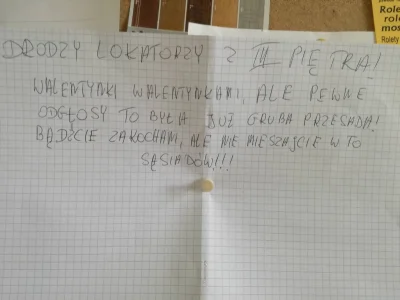 DRODZY LOKATORZY Z III PIĘTRA!
WALENTYNKI WALENTYNKAMI, ALE PEWNE
ODGŁOSY TO BYŁA JUŻ GRUBA PRZESADA!
BĄDŹCIE ZAKOCHANI, ALE NIE MIESZAJCIE W TO
SĄSIADÓW!!!
Role
Rolety